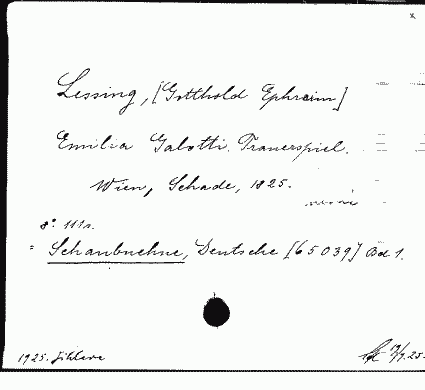 x
Lessing, [Gotthold Ephraim]
Emilia Galotti. Trauerspiel.
Wien, Schade, 1825.
8° 111s.
= Schaubuehne, Deutsche [65039] Bd. 1.
1925.